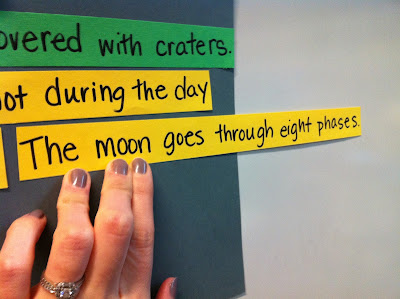 overed with craters.
not during the day
The moon goes through eight phases.